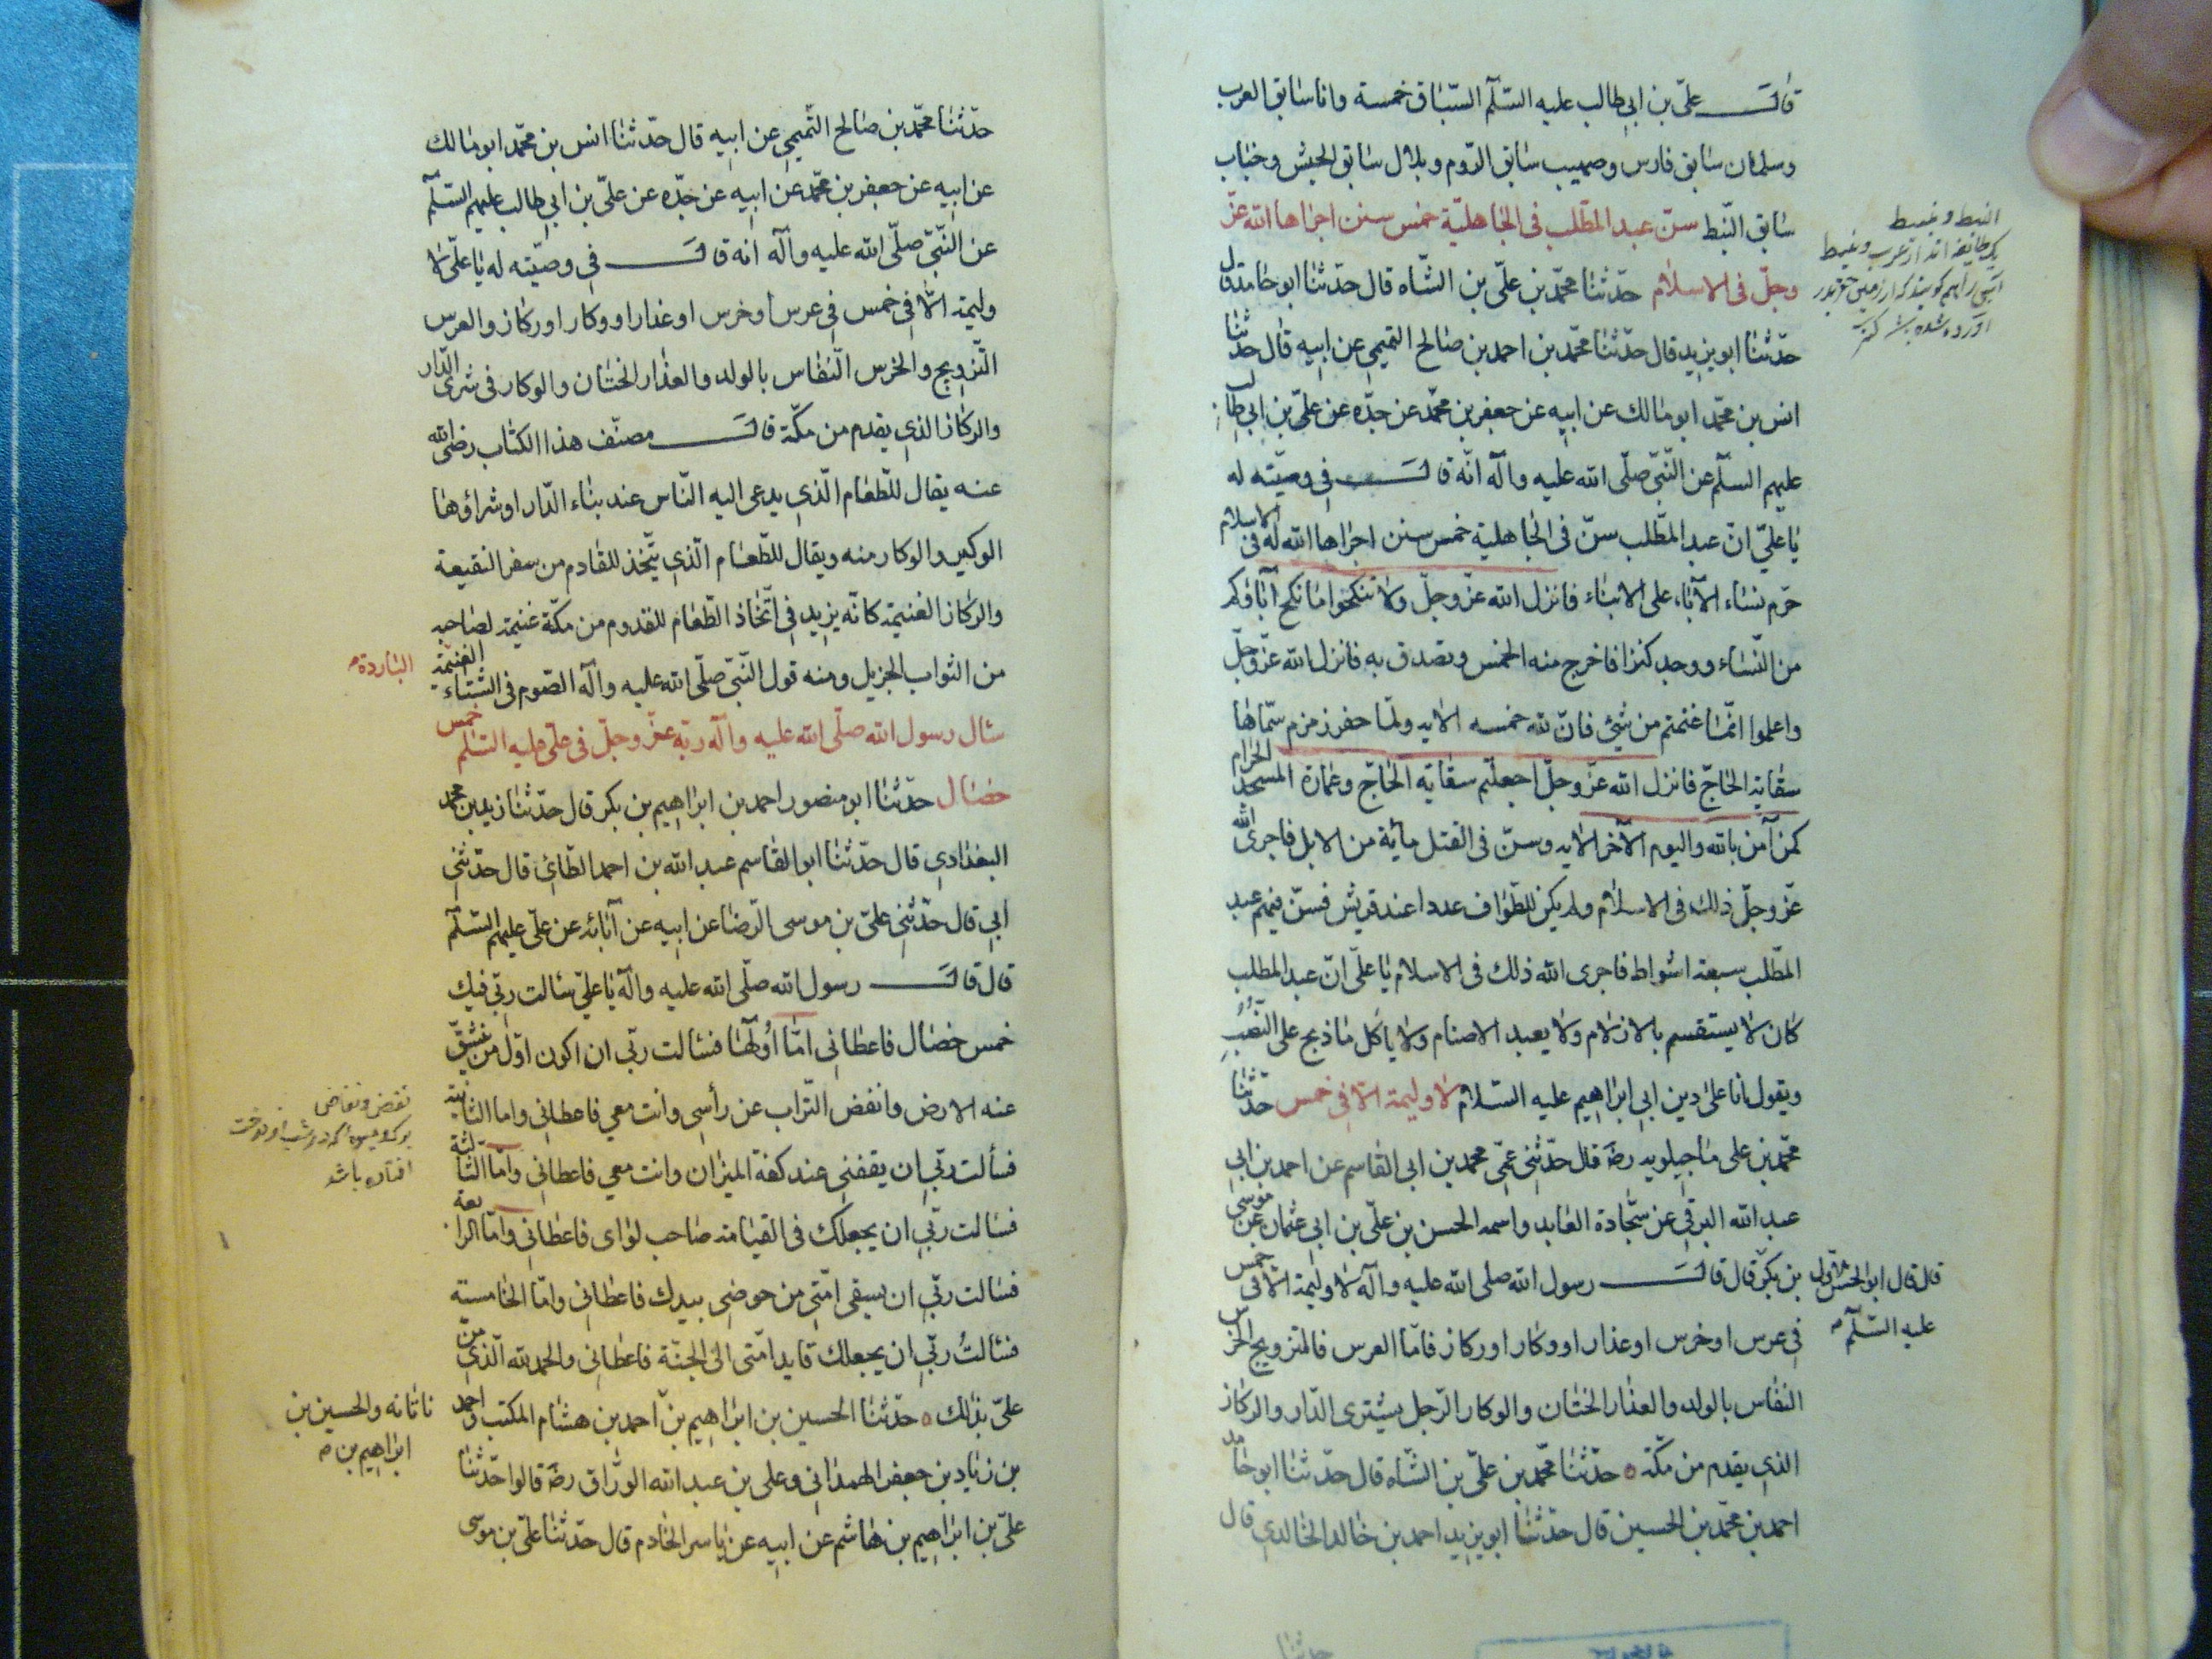 قال علیّ بن ابی طالب علیه السّلم السّبّاق خمسة وانا سابق العرب
وسلمان سابق فارس وصهیب سابق الرّوم وبلال سابق الحبش وخبّاب
سابق النّبط سنّ عبد المطّلب فی الجاهلیّة خمس سنن اجراها الله عزّ
وجلّ فی الاسلام حدّثنا محمّد بن علیّ بن الشّاه قال حدّثنا ابو حامد قال
حدّثنا ابو یزید قال حدّثنا محمّد بن احمد بن صالح التمیمی عن ابیه قال حدّثنا
انس بن محمّد ابو مالك عن ابیه عن جعفر بن محمّد عن جدّه عن علیّ بن ابی طالب
علیهم السلّم عن النّبیّ صلّی الله علیه وآله انّه قال فی وصیّته له
یا علیّ انّ عبد المطّلب سنّ فی الجاهلیة خمس سنن اجراها الله له فی الاسلام
حرّم نساء الآباء علی الابناء فانزل الله عزّ وجلّ ولا تنکحوا ما نکح آباؤکم
من النّساء ووجد کنزا فاخرج منه الخمس وتصدق به فانزل الله عزّ وجلّ
واعلموا انّما غنمتم من شیئ فانّ لله خمسه الایه ولمّا حفر زمزم سمّاها
سقایة الحاجّ فانزل الله عزّ وجلّ اجعلتم سقایة الحاجّ وعمارة المسجد الحرام
کمن آمن بالله والیوم الآخر الایه وسنّ فی القتل مأیة من الابل فاجری الله
عزّ وجلّ ذلك فی الاسلام ولم یکن للطّواف عددا عند قریش فسنّ فیهم عبد
المطّلب سبعة اشواط فاجری الله ذلك فی الاسلام یا علیّ انّ عبد المطلب
کان لا یستقسم بالازلام ولا یعبد الاصنام ولا یاکل ما ذبح علی النّصُبِ
ویقول انا علی دین ابی ابراهیم علیه السّلام لا ولیمة الّا فی خمس حدّثنا
محمّد بن علی ماجیلویه رضه قال حدّثنی عمّی محمد بن ابی القاسم عن احمد بن ابی
عبد الله البرقی عن سجّادة العابد واسمه الحسن بن علیّ بن ابی عثمان عن موسی
بن بکر قال قال رسول الله صلی الله علیه وآله لا ولیمة الّا فی خمس
قال قال ابو الحسن الاول
علیه السّلم
فی عرس او خرس او عذار او وکار او رکاز فامّا العرس فالتزویج والخرس
النفاس بالولد والعذار الختان والوکار الرّجل یشتری الدّار والرکاز
الذی یقدم من مکّة حدّثنا محمّد بن علیّ بن الشّاه قال حدّثنا ابو حامد
احمد بن محمّد بن الحسین قال حدّثنا ابو یزید احمد بن خالد الخالدی قال
حدثنا
حدّثنا محمّد بن صالح التّمیمی عن ابیه قال حدّثنا انس بن محمّد ابو مالك
عن ابیه عن جعفر بن محمّد عن ابیه عن جدّه عن علیّ بن ابی طالب علیهم السّلم
عن النّبیّ صلّی الله علیه وآله انه قال فی وصیّته له یا علیّ لا
ولیمة الّا فی خمس فی عرس او خرس او عذار او وکار او رکاز والعرس
التّزویج والخرس النّفاس بالولد والعذار الختان والوکار فی شری الدّار
والرکاز الذی یقدم من مکّة قال مصنّف هذا الکتاب رضی الله
عنه یقال للطّعام الّذی یدعی الیه النّاس عند بناء الدّار او شراؤها
الوکیر والوکار منه ویقال للطّعام الّذی یتّخذ للقادم من سفر النقیعة
والرکاز الغنیمة کانّه یرید فی اتّخاذ الطّعام للقدوم من مکّة غنیمة لصاحبه
من الثواب الجزیل ومنه قول النّبیّ صلّی الله علیه وآله الصّوم فی الشّتاء الغنیمة
الباردة
سئال رسول الله صلّی الله علیه وآله ربّه عزّ وجلّ فی علیّ علیه السّلم خمس
خصال حدّثنا ابو منصور احمد بن ابراهیم بن بکر قال حدّثنا زید بن محمد
البغدادی قال حدّثنا ابو القاسم عبد الله بن احمد الطّائی قال حدّثنی
ابی قال حدّثنی علیّ بن موسی الرّضا عن ابیه عن آبائه عن علیّ علیهم السّلم
قال قال رسول الله صلّی الله علیه وآله یا علیّ سئالت ربّی فیك
خمس خصال فاعطانی امّا اوُلٰها فسئالت ربّی ان اکون اوّل من تنشقّ
عنه الارض وانفض التّراب عن رأسی وانت معی فاعطانی واما الثانیة
فسألت ربّی ان یقفنی عند کفة المیزان وانت معی فاعطانی وامّا الثالثة
فسالت ربّی ان یجعلك فی القیامة صاحب لوای فاعطانی وامّا الرابعة
فسالت ربّی ان یسقی امّتی من حوضی بیدك فاعطانی وامّا الخامسة
فسئالتُ ربّی ان یجعلك قاید امّتی الی الجنّة فاعطانی والحمد لله الّذی من
علیّ بذلك حدّثنا الحسین بن ابراهیم بن احمد بن هشام المکتب واحمد
ناتانه والحسین بن
ابراهیم بن
بن زیاد بن جعفر الهمدانی وعلی بن عبد الله الورّاق رضه قالوا حدّثنا
علیّ بن ابراهیم بن هاشم عن ابیه عن یاسر الخادم قال حدّثنا علیّ بن موسی